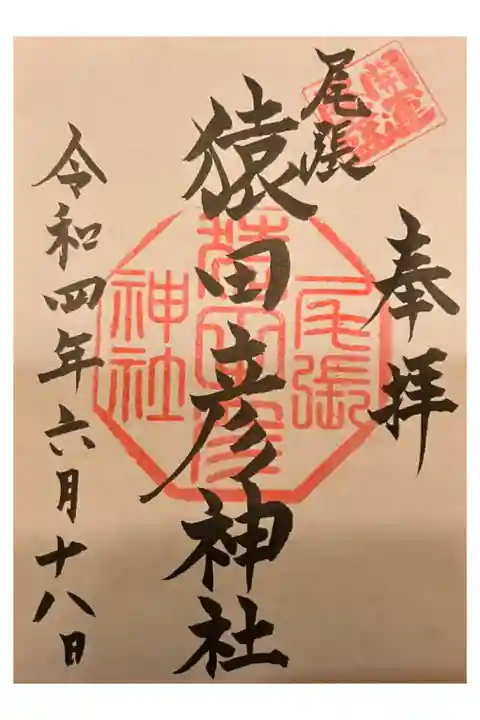 奉拝
尾張
猿田彦神社
令和四年六月十八日
尾張
猿田彦
神社